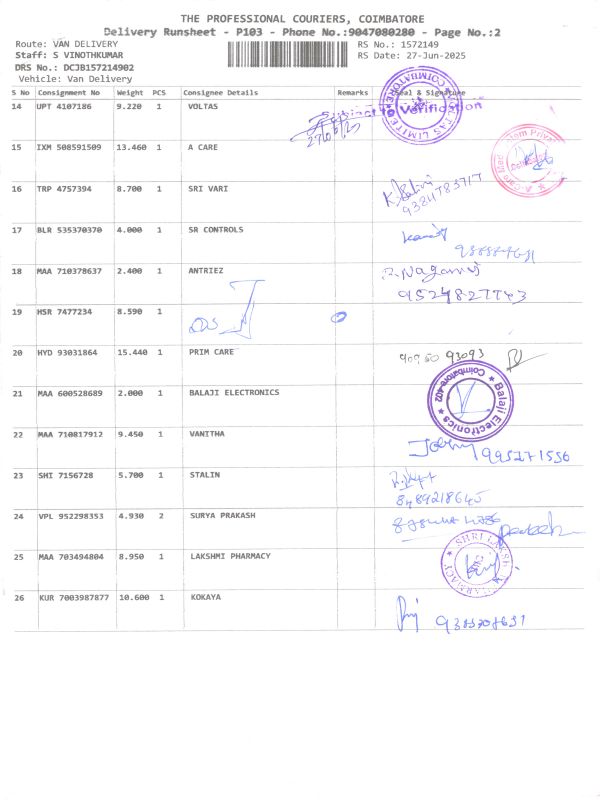 THE PROFESSIONAL COURIERS, COIMBATORE
Delivery Runsheet - P103 - Phone No.:9047080280 - Page No.:2
Route: VAN DELIVERY RS No.: 1572149
Staff: S VINOTHKUMAR RS Date: 27-Jun-2025
DRS No.: DCJB157214902
Vehicle: Van Delivery
S No Consignment No Weight PCS Consignee Details Remarks Seal & Signature
14 UPT 4107186 9.220 1 VOLTAS
Subject to Verification
VOLTAS LIMITED COIMBATORE
27/06/25
15 IXM 508591509 13.460 1 A CARE
16 TRP 4757394 8.700 1 SRI VARI
9384783717
17 BLR 535370370 4.000 1 SR CONTROLS
18 MAA 710378637 2.400 1 ANTRIEZ
9524827743
19 HSR 7477234 8.590 1
20 HYD 93031864 15.440 1 PRIM CARE
90950 93093
21 MAA 600528689 2.000 1 BALAJI ELECTRONICS
Balaji Electronics Coimbatore
22 MAA 710817912 9.450 1 VANITHA
9952771556
23 SHI 7156728 5.700 1 STALIN
8489218645
24 VPL 952298353 4.930 2 SURYA PRAKASH
25 MAA 703494804 8.950 1 LAKSHMI PHARMACY
26 KUR 7003987877 10.600 1 KOKAYA